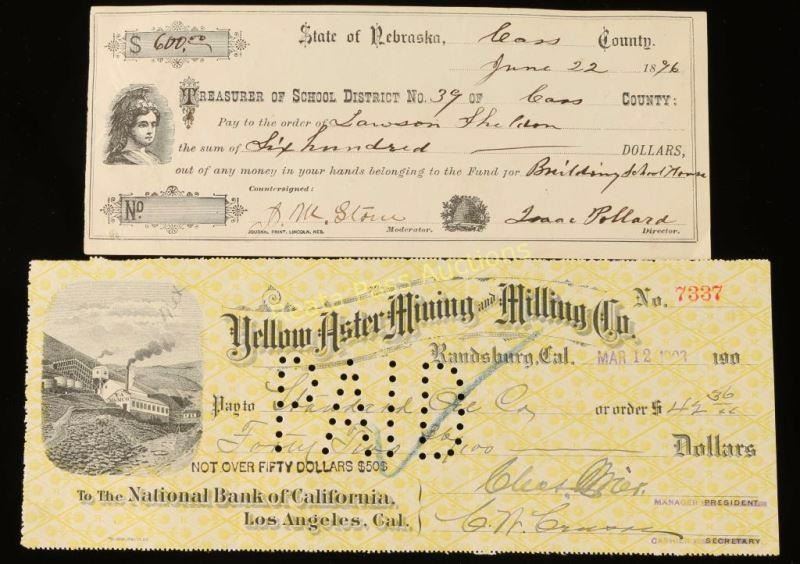 $ 600.00
State of Nebraska, Cass County.
June 22 1896
Treasurer of School District No. 39 of Cass County:
Pay to the order of Lawson Sheldon
the sum of Six hundred DOLLARS,
out of any money in your hands belonging to the Fund for Building School House
Countersigned:
No
S. M. Stone Moderator.
Isaac Pollard Director.
JOURNAL PRINT, LINCOLN, NEB.
Pass Auctions
No. 7337
Yellow Aster Mining and Milling Co.
Randsburg, Cal. MAR 12 190
PAID
Pay to Standard Oil Co or order $ 42 36/00
Forty Two /100 Dollars
NOT OVER FIFTY DOLLARS $50$
To The National Bank of California,
Los Angeles, Cal.
MANAGER PRESIDENT
CASHIER SECRETARY